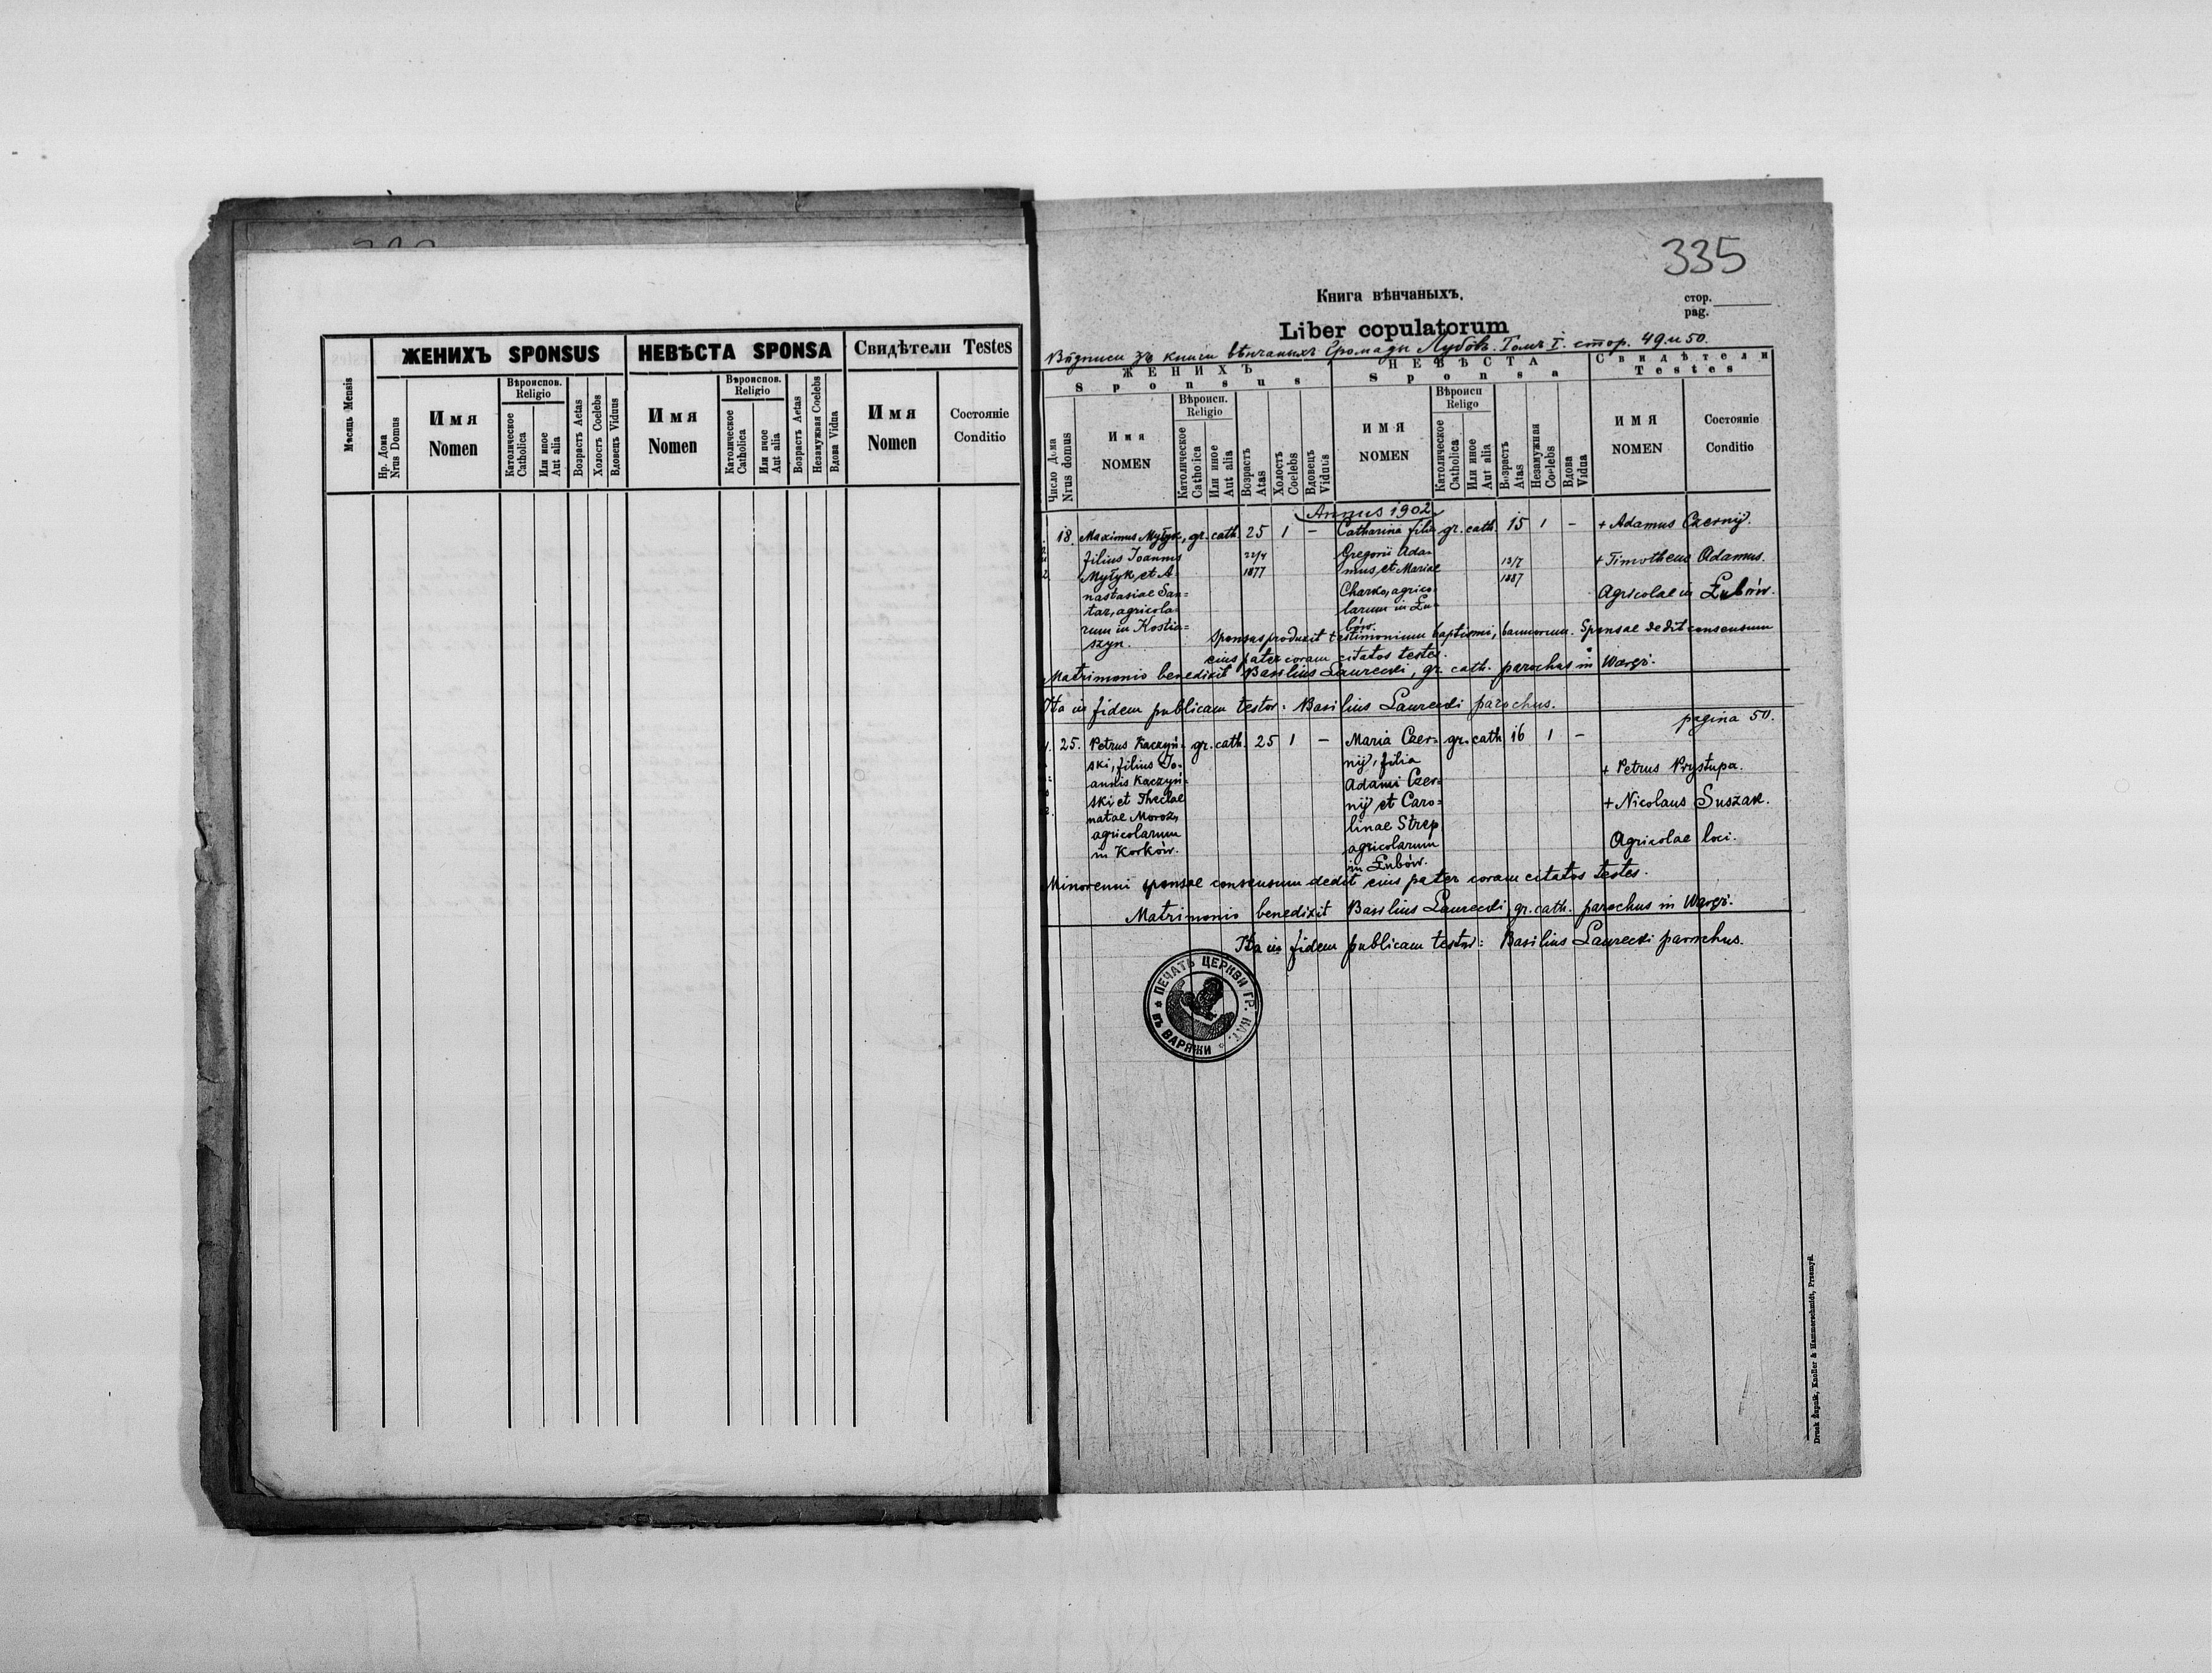 ЖЕНИХЪ SPONSUS
НЕВѢСТА SPONSA
Свидѣтели Testes
Мѣсяць Mensis
Нр. Дома
Nrus Domus
Имя
Nomen
Вѣроиспов.
Religio
Католическое
Catholica
Или иное
Aut alia
Возрастъ Aetas
Холостъ Coelebs
Вдовецъ Viduus
Имя
Nomen
Вѣроиспов.
Religio
Католическое
Catholica
Или иное
Aut alia
Возрастъ Aetas
Незамужная Coelebs
Вдова Vidua
Имя
Nomen
Состояніе
Conditio
335
Книга вѣнчаныхъ.
стор.
pag.
Liber copulatorum
Выписи зъ книги вѣнчаныхъ Громады Лубôвъ. Томъ I. стор. 49 и 50.
ЖЕНИХЪ
Sponsus
НЕВѢСТА
Sponsa
Свидѣтели
Testes
Число Дома
Nrus domus
Имя
NOMEN
Вѣроисп.
Religio
Католическое
Catholica
Или иное
Aut alia
Возрастъ
Atas
Холостъ
Coelebs
Вдовецъ
Viduus
ИМЯ
NOMEN
Вѣроисп
Religo
Католическое
Catholica
Или иное
Aut alia
Возрастъ
Atas
Незамужная
Coelebs
Вдова
Vidua
ИМЯ
NOMEN
Состояніе
Conditio
Annus 1902.
18. Maximus Myłyk, gr. cath. 25 1 – Catharina filia gr. cath. 15 1 – + Adamus Czernij.
filius Joannis 22/4 Gregorii Ada- 13/7 + Timotheus Adamus.
Myłyk, et A- 1877 mus, et Mariae 1887
nastasiae San- Charko, agrico- Agricolae in Łubów.
tar, agricola- larum in Łu-
rum in Kostia- bów.
szyn.
Sponsus produxit testimonium baptismi, bannorum. Sponsae dedit consensum
eius pater coram citatos testes.
Matrimonio benedixit Basilius Laurecki, gr. cath. parochus in Waręż.
Ita in fidem publicam testor: Basilius Laurecki parochus.
pagina 50.
25. Petrus Kaczyń- gr. cath. 25 1 – Maria Czer- gr. cath 16 1 –
ski, filius Jo- nij, filia + Petrus Prystupa.
annis Kaczyń- Adami Czer-
ski et Theclae nij et Caro- + Nicolaus Suszak.
natae Moroz, linae Strep
agricolarum agricolarum Agricolae loci.
in Korków. in Łubów.
Minorenni sponsae consensum dedit eius pater coram citatos testes.
Matrimonio benedixit Basilius Laurecki, gr. cath. parochus in Waręż.
Ita in fidem publicam testor: Basilius Laurecki parochus.
ПЕЧАТЬ ЦЕРКВИ ГР. КАТ. ВЪ ВАРЯЖИ
Druk Żupnik, Knoller & Hammerschmidt, Przemyśl.